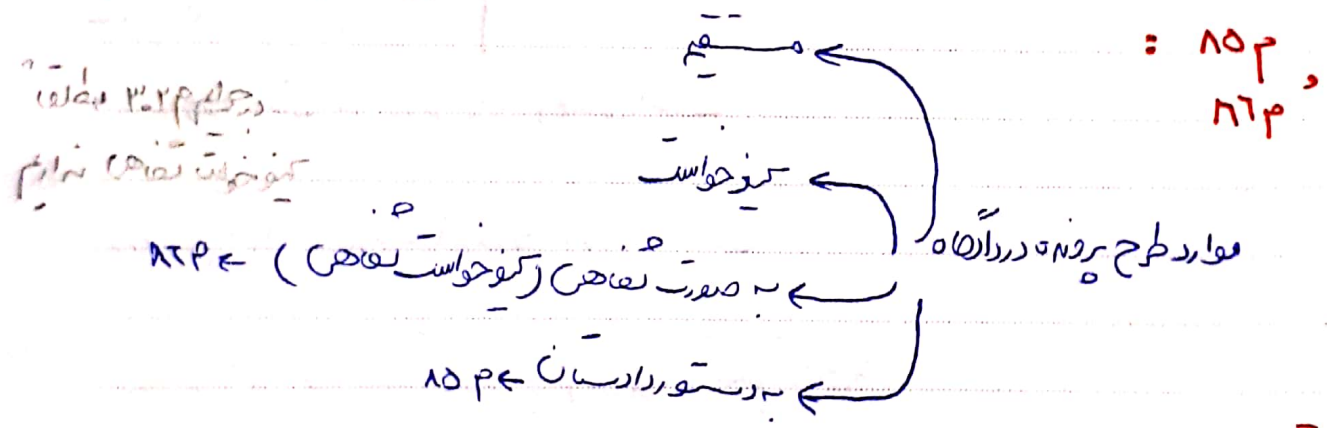 م ۸۵ :
و م ۸۶
موارد طرح پرونده در دادگاه
← مستقیم
← کیفرخواست
← به صورت شفاهی (کیفرخواست شفاهی) ← م ۸۶
← به دستور دادستان ← م ۸۵
در جرایم م ۳۰۲ مطلقاً
کیفرخواست شفاهی نداریم